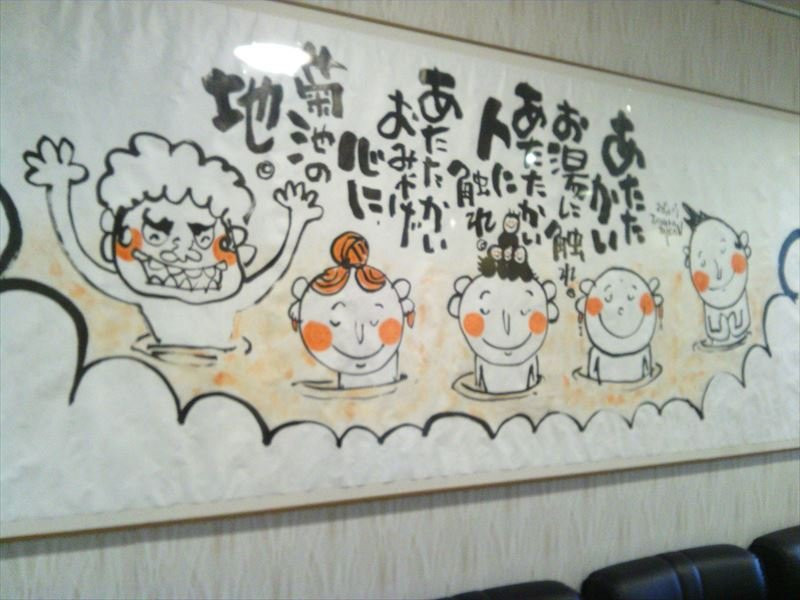 あたた
かい
お湯に
触れ。
あたたかい
人に
触れ。
あたたかい
おみやげ
心に
菊池の
地。